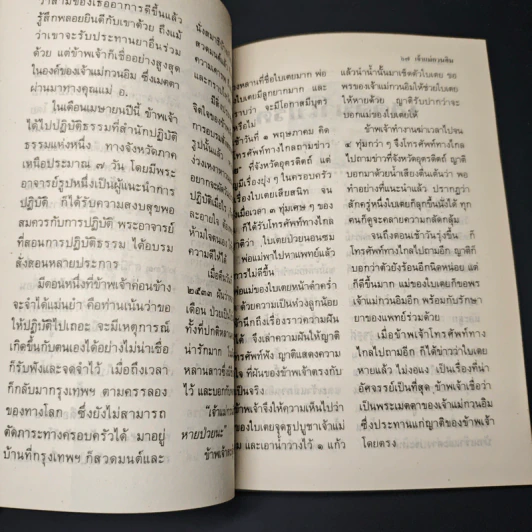 ว่าสามีของเธออาการดีขึ้นแล้ว
รู้สึกพลอยยินดีกับเขาด้วย ถึงแม้
ว่าเขาจะรับประทานยาอื่นร่วม
ด้วย แต่ข้าพเจ้าก็เชื่ออย่างสูงสุด
ในองค์ของเจ้าแม่กวนอิม ซึ่งเมตตา
ผ่านมาทางคุณแม่ อ.
ในเดือนเมษายนปีนี้ ข้าพเจ้า
ได้ไปปฏิบัติธรรมที่สำนักปฏิบัติ
ธรรมแห่งหนึ่ง ทางจังหวัดภาค
เหนือประมาณ ๗ วัน โดยมีพระ
อาจารย์รูปหนึ่งเป็นผู้แนะนำการ
ปฏิบัติ ก็ได้รับความสงบสุขพอ
สมควรกับการปฏิบัติ พระอาจารย์
ที่สอนการปฏิบัติธรรม ได้อบรม
สั่งสอนหลายประการ
มีตอนหนึ่งที่ข้าพเจ้าค่อนข้าง
จะจำได้แม่นยำ คือท่านเน้นว่าขอ
ให้ปฏิบัติไปเถอะ จะมีเหตุการณ์
เกิดขึ้นกับตนเองได้อย่างไม่น่าเชื่อ
ก็รับฟังและจดจำไว้ เมื่อถึงเวลา
ก็กลับมากรุงเทพฯ ตามตรรลอง
ของทางโลก ซึ่งยังไม่สามารถ
ตัดภาระทางครอบครัวได้ มาอยู่
บ้านที่กรุงเทพฯ ก็สวดมนต์และ
นั่งสมาธิ
สวดมนต์
ความเคารพ
และกราบ
จิตใจของ
การอบรม
ช่วงเทศกาล
อยากจะ
ปฏิบัติเมื่อ
ละอายใจ
ห้ามใจตนเอง
ความดีให้
เมื่อต้น
๒๕๓๓
เดือน ป่วยเป็น
ทั้งที่ปกติหลาน
น่ารักมาก
หลานสาว
และบอกกับ
"เจ้าแม่กวนอิม
หายป่วยนะ"
ข้าพเจ้า
หลานที่ชื่อใบเตยมาก พ่อ
มีลูกยากมาก และ
ว่า จะมีโอกาสมีบุตร
หรือไม่
เช้าวันที่ ๑ พฤษภาคม คิด
โทรศัพท์ทางไกลถามข่าว
ที่จังหวัดอุตรดิตถ์ แต่
มีเรื่องยุ่ง ๆ ในครอบครัว
ใบเตยเสียสนิท จน
เวลา ๓ ทุ่มเศษ ๆ ของ
ก็ได้รับโทรศัพท์ทางไกล
ว่า ใบเตยป่วยนอนซม
พ่อแม่พาไปหาแพทย์แล้ว
ไม่ดีขึ้น
แม่ของใบเตยหน้าดำคร่ำ
ด้วยความเป็นห่วงลูกน้อย
นึกถึงเรื่องราวความฝัน
จึงเล่าความฝันให้ญาติ
โทรศัพท์ฟัง ญาติแสดงความ
ที่ฝันของข้าพเจ้าตรงกับ
เป็นจริง
ข้าพเจ้าจึงให้ความเห็นไปว่า
ของใบเตยจุดธูปบูชาเจ้าแม่
และเอาน้ำวางไว้ ๑ แก้ว
๖๗ เจ้าแม่กวนอิม
แล้วนำน้ำนั้นมาเช็ดตัวใบเตย ขอ
พรของเจ้าแม่กวนอิมให้ช่วยใบเตย
ให้หายด้วย ญาติรับปากว่าจะ
บอกแม่ของใบเตยให้
ข้าพเจ้าทำงานฆ่าเวลาไปจน
๔ ทุ่มกว่า ๆ จึงโทรศัพท์ทางไกล
ไปถามข่าวที่จังหวัดอุตรดิตถ์ ญาติ
บอกมาด้วยน้ำเสียงตื่นเต้นว่า พอ
ทำอย่างที่แนะนำแล้ว ปรากฏว่า
สักครู่หนึ่งใบเตยก็ลุกขึ้นนั่งได้ ทุก
คนก็ดูจะคลายความกลัดกลุ้ม
จนถึงตอนเช้าวันรุ่งขึ้น ก็
โทรศัพท์ทางไกลไปถามอีก ญาติก็
บอกว่าตัวยังร้อนอีกนิดหน่อย แต่
ก็ดีขึ้นมาก แม่ของใบเตยก็ขอพร
เจ้าแม่กวนอิมอีก พร้อมกับรักษา
ยาของแพทย์ร่วมด้วย
เมื่อข้าพเจ้าโทรศัพท์ทาง
ไกลไปถามอีก ก็ได้ข่าวว่าใบเตย
หายแล้ว ไม่งอแง เป็นเรื่องที่น่า
อัศจรรย์เป็นที่สุด ข้าพเจ้าเชื่อว่า
เป็นพระเมตตาของเจ้าแม่กวนอิม
ซึ่งประทานแก่ญาติของข้าพเจ้า
โดยตรง